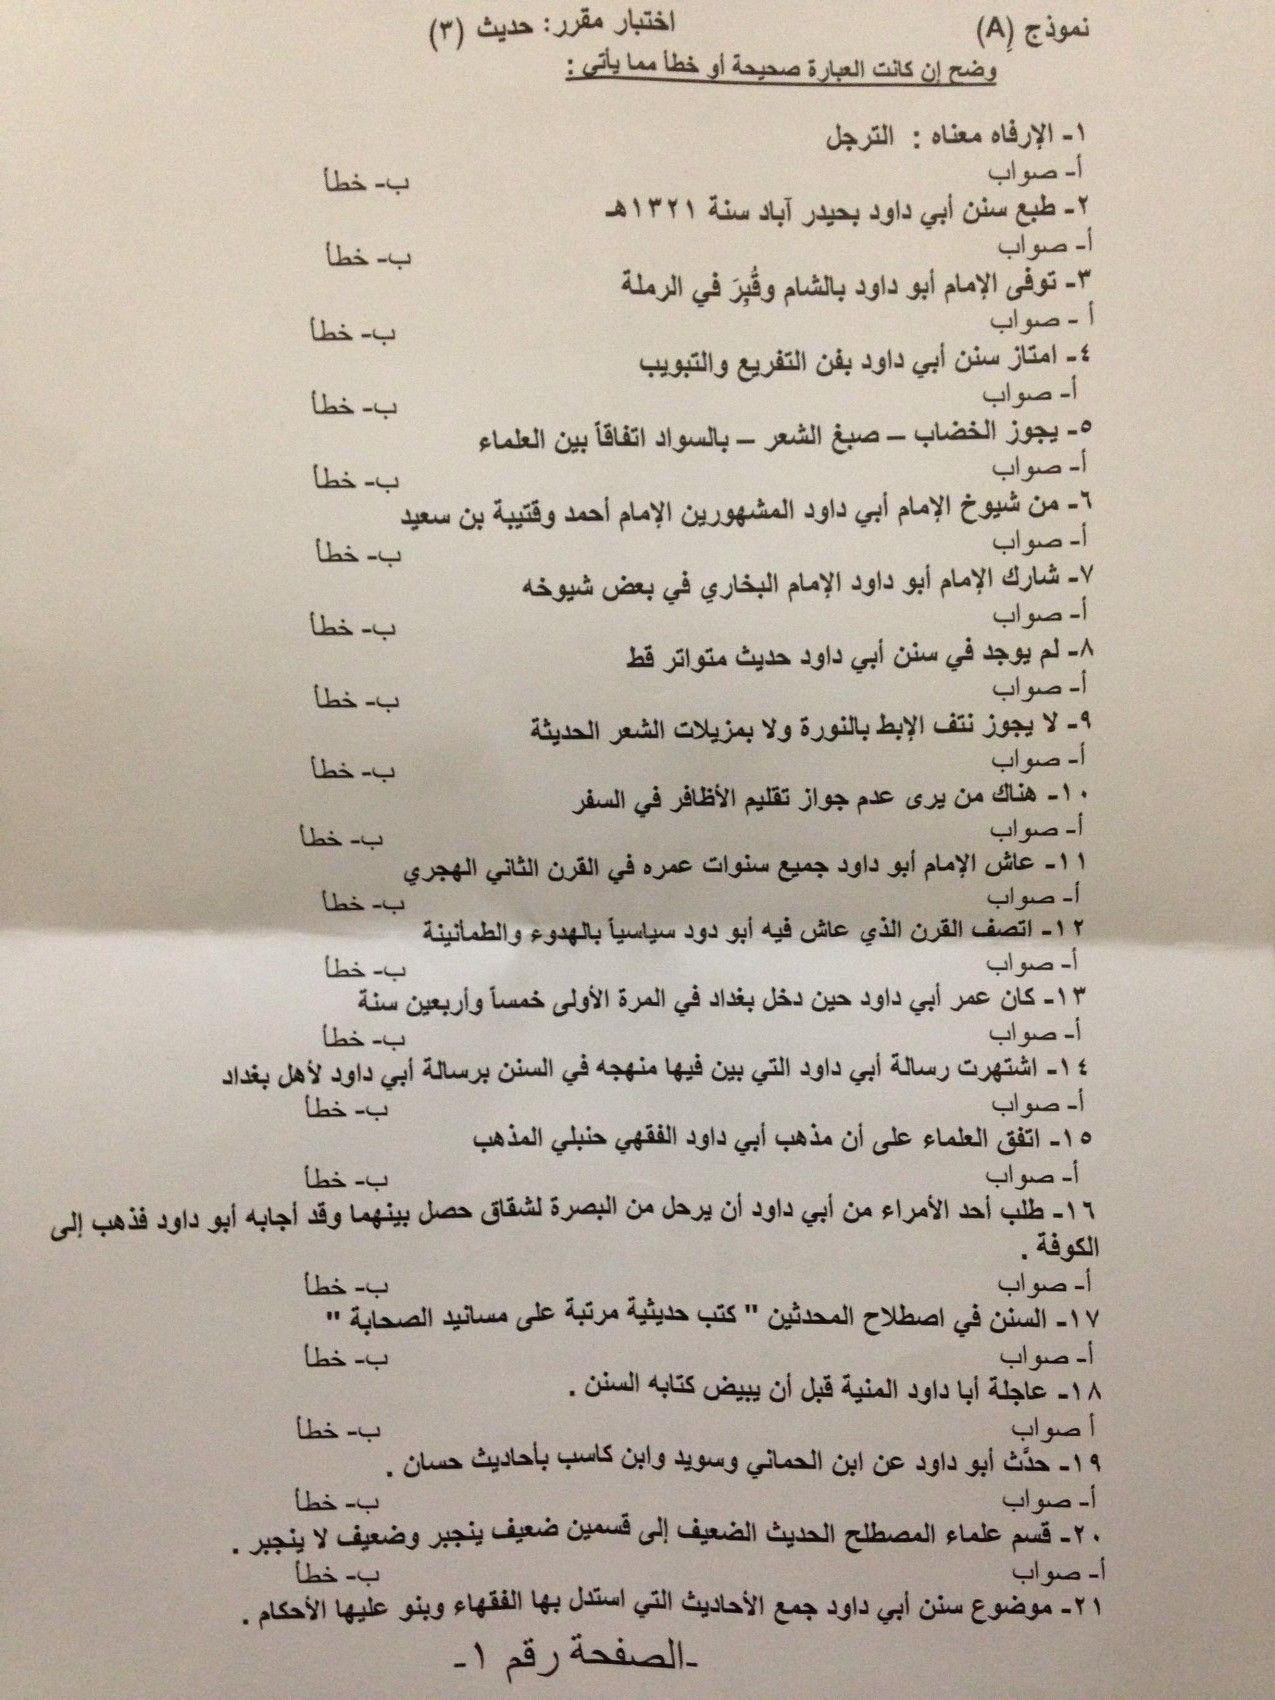 نموذج (A) اختبار مقرر: حديث (٣)
وضح إن كانت العبارة صحيحة أو خطأ مما يأتي :
١- الإرفاه معناه : الترجل
أ- صواب ب- خطأ
٢- طبع سنن أبي داود بحيدر آباد سنة ١٣٢١هـ
أ- صواب ب- خطأ
٣- توفى الإمام أبو داود بالشام وقُبِرَ في الرملة
أ - صواب ب- خطأ
٤- امتاز سنن أبي داود بفن التفريع والتبويب
أ- صواب ب- خطأ
٥- يجوز الخضاب – صبغ الشعر – بالسواد اتفاقاً بين العلماء
أ- صواب ب- خطأ
٦- من شيوخ الإمام أبي داود المشهورين الإمام أحمد وقتيبة بن سعيد
أ- صواب ب- خطأ
٧- شارك الإمام أبو داود الإمام البخاري في بعض شيوخه
أ- صواب ب- خطأ
٨- لم يوجد في سنن أبي داود حديث متواتر قط
أ- صواب ب- خطأ
٩- لا يجوز نتف الإبط بالنورة ولا بمزيلات الشعر الحديثة
أ- صواب ب- خطأ
١٠- هناك من يرى عدم جواز تقليم الأظافر في السفر
أ- صواب ب- خطأ
١١- عاش الإمام أبو داود جميع سنوات عمره في القرن الثاني الهجري
أ- صواب ب- خطأ
١٢- اتصف القرن الذي عاش فيه أبو دود سياسياً بالهدوء والطمأنينة
أ- صواب ب- خطأ
١٣- كان عمر أبي داود حين دخل بغداد في المرة الأولى خمساً وأربعين سنة
أ- صواب ب- خطأ
١٤- اشتهرت رسالة أبي داود التي بين فيها منهجه في السنن برسالة أبي داود لأهل بغداد
أ- صواب ب- خطأ
١٥- اتفق العلماء على أن مذهب أبي داود الفقهي حنبلي المذهب
أ- صواب ب- خطأ
١٦- طلب أحد الأمراء من أبي داود أن يرحل من البصرة لشقاق حصل بينهما وقد أجابه أبو داود فذهب إلى
الكوفة .
أ- صواب ب- خطأ
١٧- السنن في اصطلاح المحدثين " كتب حديثية مرتبة على مسانيد الصحابة "
أ- صواب ب- خطأ
١٨- عاجلة أبا داود المنية قبل أن يبيض كتابه السنن .
أ صواب ب- خطأ
١٩- حدَّث أبو داود عن ابن الحماني وسويد وابن كاسب بأحاديث حسان .
أ- صواب ب- خطأ
٢٠- قسم علماء المصطلح الحديث الضعيف إلى قسمين ضعيف ينجبر وضعيف لا ينجبر .
أ- صواب ب- خطأ
٢١- موضوع سنن أبي داود جمع الأحاديث التي استدل بها الفقهاء وبنو عليها الأحكام .
-الصفحة رقم ١-